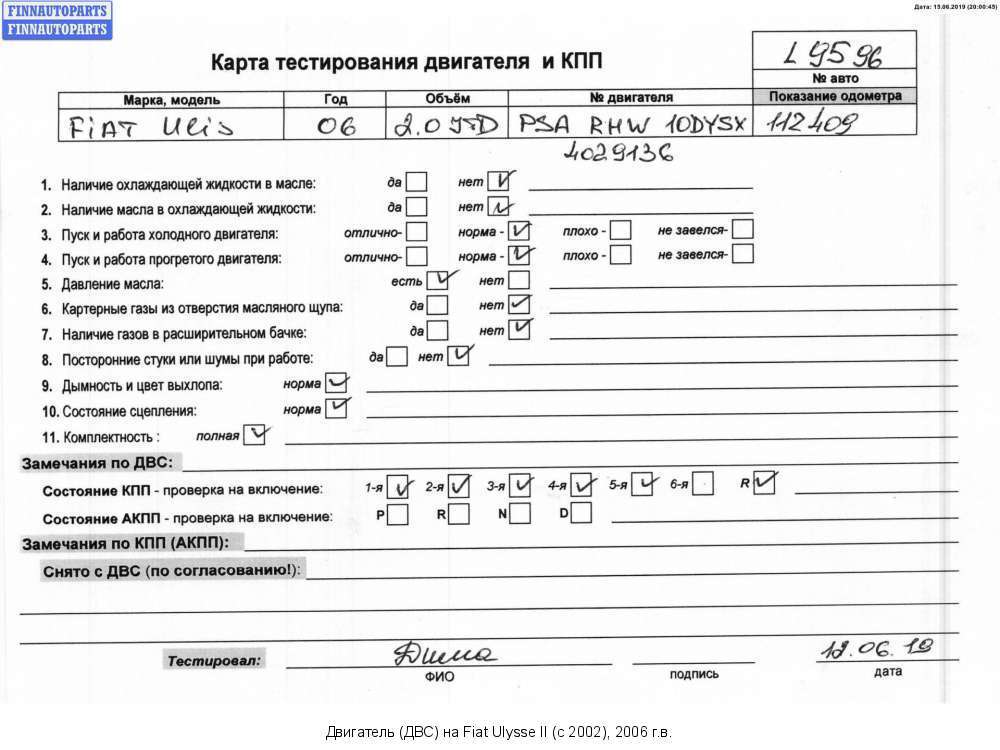 FINNAUTOPARTS
FINNAUTOPARTS
Дата: 15.06.2019 (20:00:45)
L9596
Карта тестирования двигателя и КПП
№ авто
Марка, модель Год Объём № двигателя Показание одометра
FiAT Ulis 06 2.0 JTD PSA RHW 10DYSX 112409
4029136
1. Наличие охлаждающей жидкости в масле: да нет
2. Наличие масла в охлаждающей жидкости: да нет
3. Пуск и работа холодного двигателя: отлично- норма - плохо - не завелся-
4. Пуск и работа прогретого двигателя: отлично- норма - плохо - не завелся-
5. Давление масла: есть нет
6. Картерные газы из отверстия масляного щупа: да нет
7. Наличие газов в расширительном бачке: да нет
8. Посторонние стуки или шумы при работе: да нет
9. Дымность и цвет выхлопа: норма
10. Состояние сцепления: норма
11. Комплектность : полная
Замечания по ДВС:
Состояние КПП - проверка на включение: 1-я 2-я 3-я 4-я 5-я 6-я R
Состояние АКПП - проверка на включение: P R N D
Замечания по КПП (АКПП):
Снято с ДВС (по согласованию!):
Тестировал: Дима 12.06.19
ФИО подпись дата
Двигатель (ДВС) на Fiat Ulysse II (с 2002), 2006 г.в.